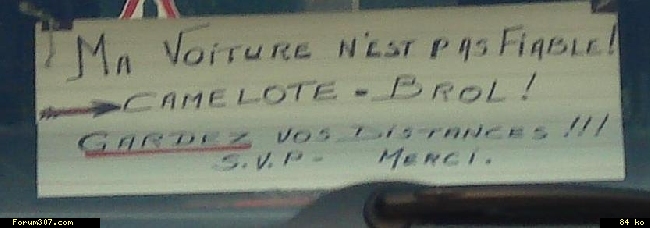 MA VOITURE N'EST PAS FIABLE!
CAMELOTE - BROL!
GARDEZ VOS DISTANCES!!!
S.V.P - MERCI.
Forum307.com 84 ko